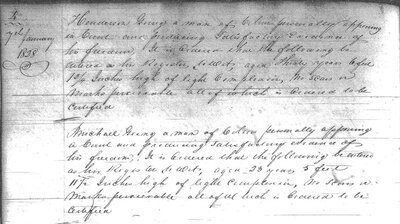 7th
January
1838
Henderson Going a man of Color personally appearing
in Court and producing Satisfactory Evidence of
his freedom, It is Ordered that the following be
entered as his Register to Wit, aged Thirty years 5 feet
Inches high of light Complexion, No Scars or
Marks perceivable all of which is Ordered to be
Certified
Michael Going a man of Color personally appearing
in Court and producing Satisfactory evidence of
his freedom, It is Ordered that the following be entered
as his Register to Wit, aged 23 years 5 feet
11½ Inches high of light Complexion, No Scars or
Marks perceivable all of which is Ordered to be
Certified